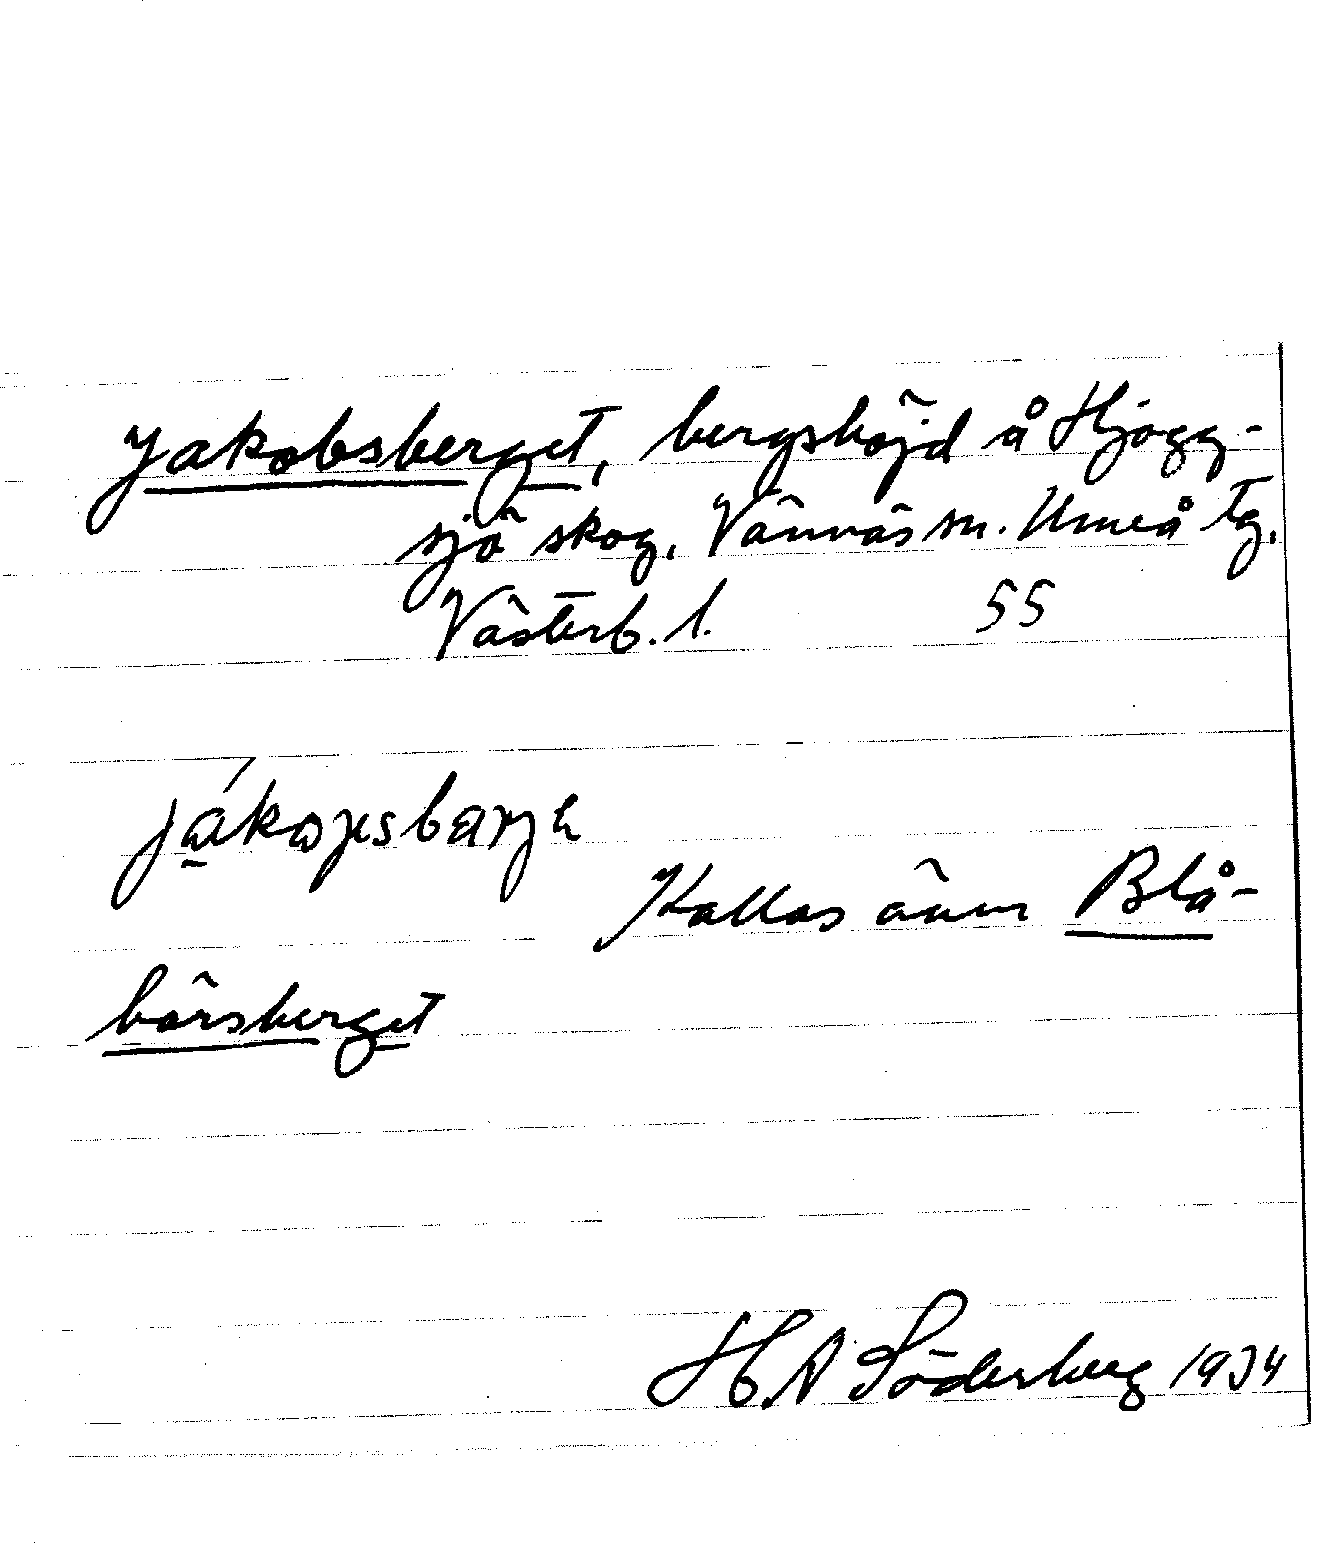 Jakobsberget, bergshöjd å Hjogg-
sjö skog, Vännäs sn. Umeå tg.
Västerb. l. 55
Kallas även Blå-
bärsberget
H. A Söderberg 1934